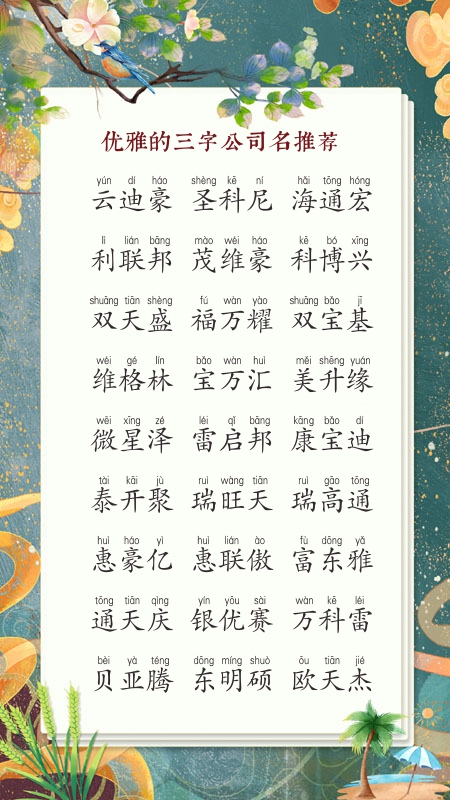 优雅的三字公司名推荐
yún dí háo shèng kē ní hǎi tōng hóng
云迪豪 圣科尼 海通宏
lì lián bāng mào wéi háo kē bó xīng
利联邦 茂维豪 科博兴
shuāng tiān shèng fú wàn yào shuāng bǎo jī
双天盛 福万耀 双宝基
wéi gé lín bǎo wàn huì měi shēng yuán
维格林 宝万汇 美升缘
wēi xīng zé léi qǐ bāng kāng bǎo dí
微星泽 雷启邦 康宝迪
tài kāi jù ruì wàng tiān ruì gāo tōng
泰开聚 瑞旺天 瑞高通
huì háo yì huì lián ào fù dōng yǎ
惠豪亿 惠联傲 富东雅
tōng tiān qìng yín yōu sài wàn kē léi
通天庆 银优赛 万科雷
bèi yà téng dōng míng shuò ōu tiān jié
贝亚腾 东明硕 欧天杰